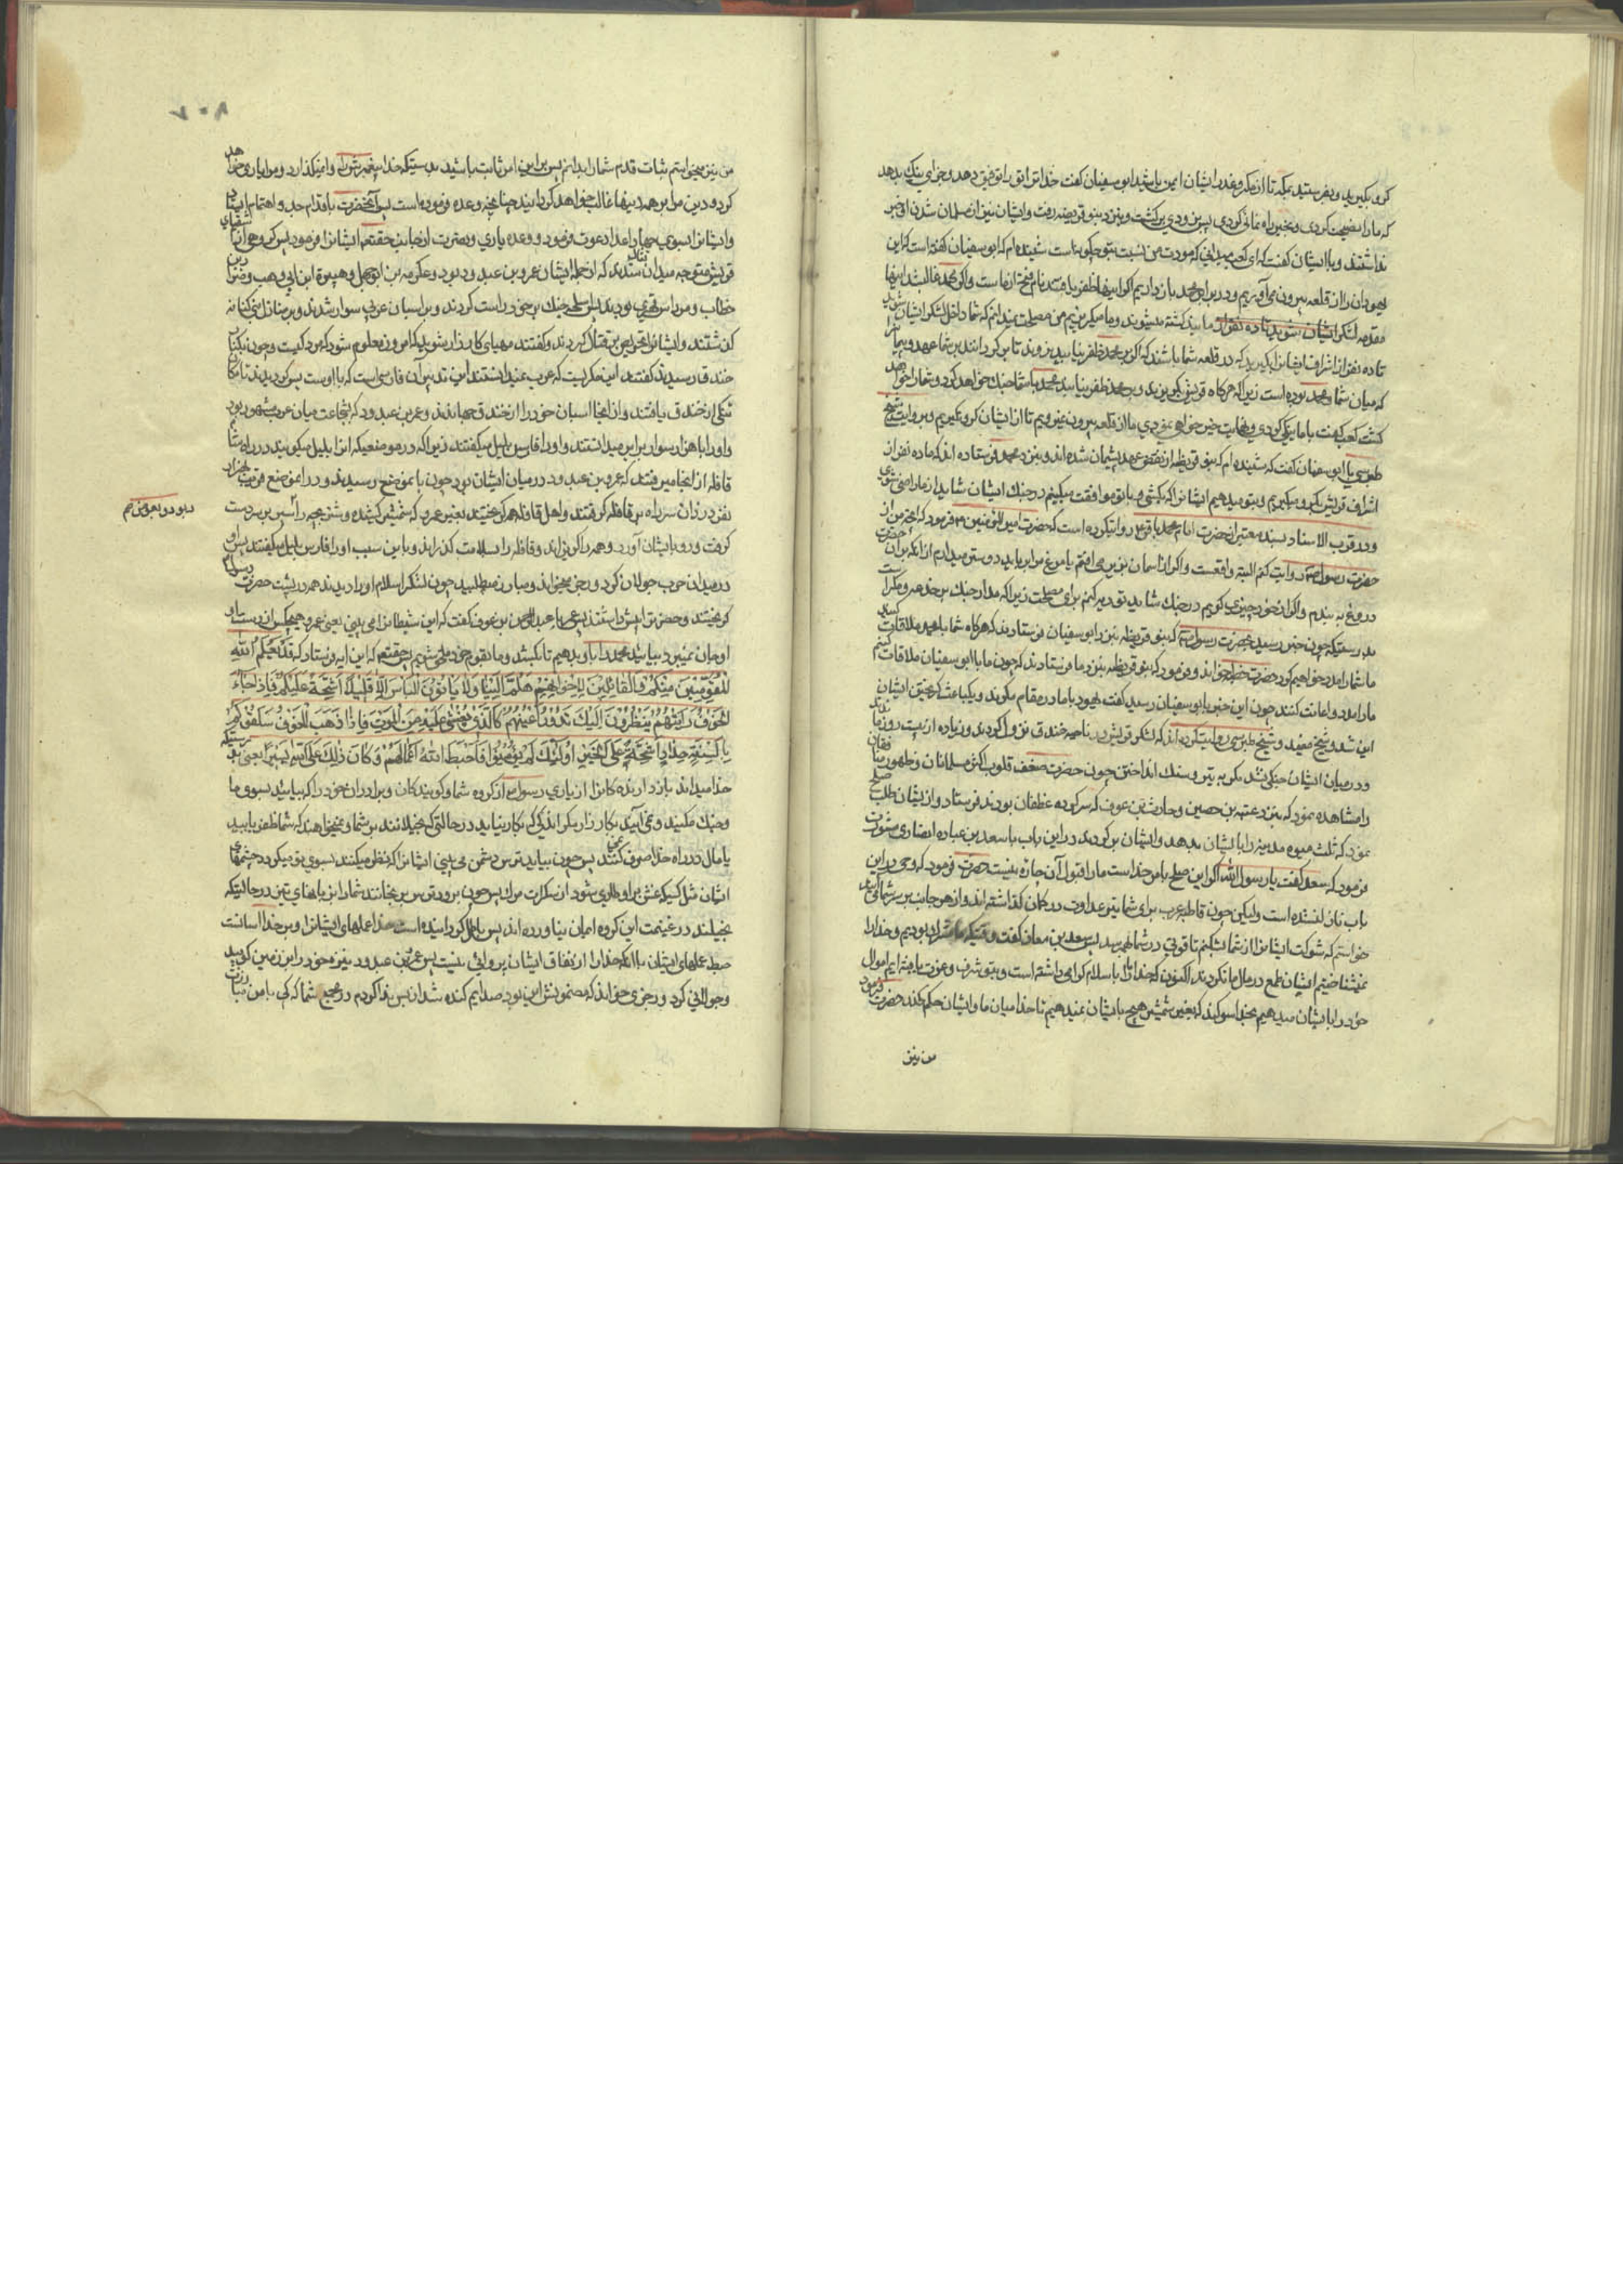 کرو بگیرید و بفرستید بمکه تا از مکر و غدر ایشان ایمن باشید ابو سفیان گفت خدا ترا توفیق دهد و جزای نیک بدهد
که ما را نصیحت کردی و بخیر راه نمائی کردی پس بزودی برگشت و بنزد بنو قریظه رفت و ایشان نیز از مسلمان شدن او خبر
نداشتند و با ایشان گفت که ای کعب میدانی که مودت من نسبت بتو چگونه است شنیده ام که ابو سفیان گفته است که این
یهودان را از قلعه بیرون می آوریم و در برابر محمد باز داریم اگر اینها ظفر یافتند نام فتح از ماست و اگر محمد غالب شد اینها
مقدمه لشکر ایشان کشته میشوند و ما میگریزیم من مصلحت نمیدانم که شما داخل لشکر ایشان شوید
تا ده نفر از اشراف ایشان را بگیرید که در قلعه شما باشند که اگر بر محمد ظفر نیابند نروند تا برگردانند بر شما عهد و پیمانی را
که میان شما و محمد بوده است زیرا که هرگاه قریش بگریزند و بر محمد ظفر نیابند محمد با شما جنگ خواهد کرد و شما را خواهد
کشت کعب گفت با ما نیکی کردی و نهایت خیر خواهی نمودی ما از قلعه بیرون نمیرویم تا از ایشان کرو نگیریم و بروایت شیخ
طبرسی با ابو سفیان گفت که شنیده ام که بنو قریظه از نقض عهد پشیمان شده اند و بنزد محمد فرستاده اند که ما ده نفر از
اشراف قریش بگرو میگیریم و بتو میدهیم ایشان را که بکشی و با تو موافقت میکنیم در جنگ ایشان شاید از ما راضی شوی
و در قرب الاسناد بسند معتبر از حضرت امام محمد باقر ع روایت کرده است که حضرت امیر المؤمنین ع فرمود که آنچه من از
حضرت رسول ص روایت کنم البته واقعست و اگر از آسمان بزیر می افتم یا مرغ مرا برباید دوستر میدارم از آنکه بر آن حضرت
دروغ به بندم و اگر از خود چیزی گویم در جنگ شاید توریه کنم برای مصلحت زیرا که مدار جنگ بر خدعه و مکر است
بدرستیکه چون خبر رسید بحضرت رسول ص که بنو قریظه بنزد ابو سفیان فرستادند که هرگاه شما با محمد ملاقات کنید
ما شما را مدد خواهیم کرد حضرت خطبه خواند و فرمود که بنو قریظه بنزد ما فرستادند که چون ما با ابو سفیان ملاقات کنیم
ما را مدد و اعانت کنند چون این خبر بابو سفیان رسید گفت یهود با ما در مقام مکرند و یک باعث گریختن ایشان
این شد و شیخ مفید و شیخ طبرسی روایت کرده اند که لشکر قریش در ناحیه خندق نزول کردند و زیاده از بیست روز ماندند
و در میان ایشان جنگی نشد مگر به تیر و سنگ انداختن چون حضرت ضعف قلوب اکثر مسلمانان و ظهور نفاق
را مشاهده نمود کس بنزد عیینه بن حصین و حارث بن عوف که سرکرده غطفان بودند فرستاد و از ایشان طلب صلح
نمود که ثلث میوه مدینه را بایشان بدهد و ایشان برگردند و در این باب با سعد بن عباده انصاری مشورت
فرمود که سعد گفت یا رسول الله اگر این صلح بامر خداست ما را از قبول آن چاره نیست حضرت فرمود که وحی در این
باب نازل نشده است ولیکن چون قاطبه عرب برای شما تیر عداوت در کمان گذاشته اند و از هر جانب بر سر شما آمدند
خواستم که شوکت ایشان را از شما بشکنم تا قوتی در شما بهم رسد پس سعد بن معاذ گفت وقتیکه ما مشرک بودیم و خدا را
نمیشناختیم ایشان طمع در مال ما نکردند اکنون که خدا ما را باسلام گرامی داشته است و بتو شرف و عزت یافته ایم اموال
خود را بایشان میدهیم بخدا سوگند که بغیر شمشیر هیچ بایشان نمیدهیم تا خدا میان ما و ایشان حکم کند حضرت فرمود
من نیز
۹۰۷
من نیز میخواستم ثبات قدم شما را بدانم پس بر این امر ثابت باشید بدرستیکه خدا پیغمبرش را وا نمیگذارد و مرا یاری خواهد
کرد و دین مرا بر همه دینها غالب خواهد گردانید چنانچه وعده فرموده است پس آنحضرت باقدام جد و اهتمام ایشان
و ایشان را بسوی جهاد اعدا دعوت فرمود و وعده یاری و نصرت از جانب حقتعم ایشان را فرمود پس گروهی از اشقیای
قریش متوجه میدان قتال شدند که از جمله ایشان عمرو بن عبد ود بود و عکرمه بن ابو جهل و هبیره ابن ابی وهب و ضرار بن
خطاب و مرداس فهری بودند پس اسلحه جنگ بر خود راست کردند و بر اسبان عربی سوار شدند و بر منازل بنی کنانه
گذشتند و ایشان را تحریص بر قتال کردند و گفتند مهیای کارزار شوید که امروز معلوم شود که مرد کیست و چون بکنار
خندق رسیدند گفتند این مکریست که عرب نمیدانستند این تدبیر آن فارسی است که با اوست پس گردیدند تا مکان
تنگی از خندق یافتند و از آنجا اسبان خود را از خندق جهانیدند و عمر بن عبد ود که بشجاعت میان عرب مشهور بود
و او را با هزار سوار برابر میدانستند و او را فارس یلیل میگفتند زیرا که در موضعیکه آنرا یلیل میگویند در راه شام
قافله از آنجا میرفتند که عمرو بن عبد ود در میان ایشان بود چون بآن موضع رسیدند و در آن موضع قریب بهزار
نفر دزدان سر راه بر قافله گرفتند و اهل قافله همه گریختند بغیر عمرو که شمشیر کشیده و شتر بچه را سپر بر سر دست
گرفت و رو بایشان آورد و همه را گریزاند و قافله را بسلامت گذرانید و باین سبب او را فارس یلیل میگفتند پس او
در میدان حرب جولان کرد و رجز میخواند و مبارز میطلبید چون لشکر اسلام او را دیدند همه در پشت حضرت رسول ص
گریختند و حضرت را پیش داشتند پس عمر با عبد الرحمن بن عوف گفت که این شیطان را می بینی یعنی عمرو هیچکس از دست او
او جان نمیبرد بیائید محمد را باو بدهیم تا بکشد و ما بقوم خود ملحق شویم پس حقتعم این آیه فرستاد که قَدْ يَعْلَمُ اللّٰهُ
الْمُعَوِّقِينَ مِنْكُمْ وَالْقَائِلِينَ لِإِخْوَانِهِمْ هَلُمَّ إِلَيْنَا وَلَا يَأْتُونَ الْبَأْسَ إِلَّا قَلِيلًا أَشِحَّةً عَلَيْكُمْ فَإِذَا جَاءَ
الْخَوْفُ رَأَيْتَهُمْ يَنْظُرُونَ إِلَيْكَ تَدُورُ أَعْيُنُهُمْ كَالَّذِي يُغْشَى عَلَيْهِ مِنَ الْمَوْتِ فَإِذَا ذَهَبَ الْخَوْفُ سَلَقُوكُمْ
بِأَلْسِنَةٍ حِدَادٍ أَشِحَّةً عَلَى الْخَيْرِ أُولٰئِكَ لَمْ يُؤْمِنُوا فَأَحْبَطَ اللّٰهُ أَعْمَالَهُمْ وَكَانَ ذٰلِكَ عَلَى اللّٰهِ يَسِيرًا یعنی بدرستیکه
خدا میداند باز دارنده کان را از یاری رسول ص از گروه شما و گویندکان و برادران خود را که بیایید بسوی ما
و جنگ مکنید و نمی آیند بکارزار مگر اندکی که بکار نیاید در حالتی که بخیلانند بر شما و نمیخواهند که شما ظفر یابید
یا مال در راه خدا صرف کنند پس چون بیاید ترس دشمن می بینی ایشان را که نظر میکنند بسوی تو میگردد چشمهای
ایشان مثل کسیکه غش بر او طاری شود از سکرات مرگ پس چون برود ترس برنجانند شما را بزبانهای تیز در حالتیکه
بخیلند در غنیمت این گروه ایمان نیاورده اند پس باطل گردانیده است خدا عملهای ایشان را و بر خدا آسانست
حبط عملهای ایشان یا آنکه خدا را از نفاق ایشان پروائی نیست پس عمرو بن عبد ود نیزه خود را بر زمین کوبید
و جولانی کرد و رجزی خواند که مضمونش این بود صدایم کنده شد از بس ندا کردم در مجمع شما که کی با من مبارزت